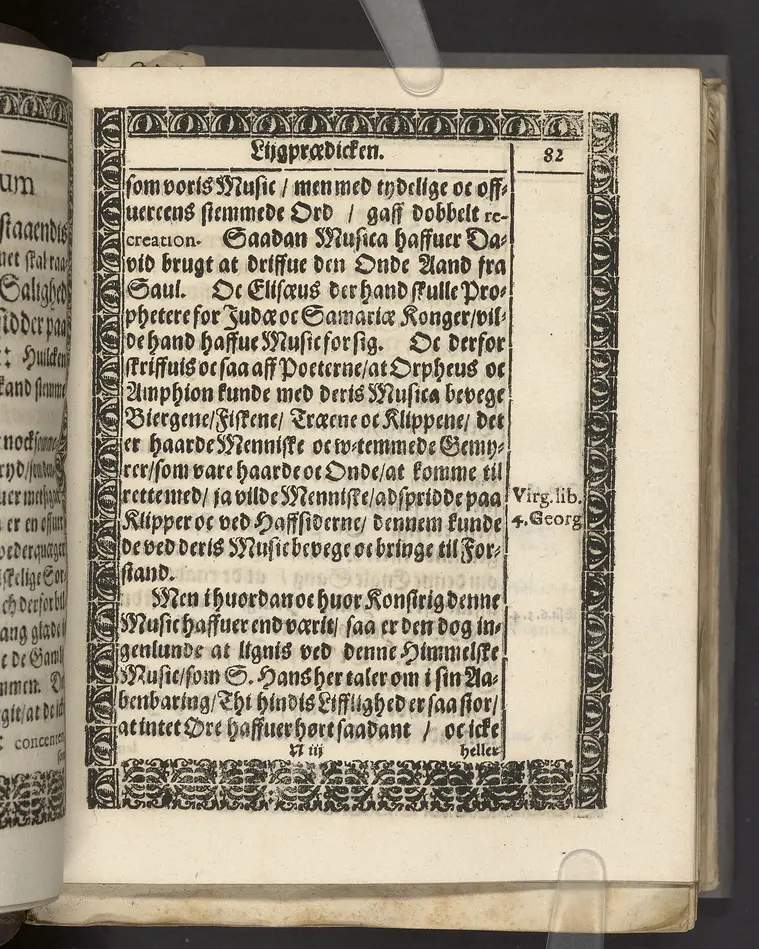 Lijgprædicken.
82
som voris Music / men med tydelige oc off-
uereens stemmede Ord / gaff dobbelt re-
creation. Saadan Musica haffuer Da-
vid brugt at driffue den Onde Aand fra
Saul. Oc Elisæus der hand skulle Pro-
phetere for Judæ oc Samariæ Konger/vil-
de hand haffue Music for sig. Oc derfor
skriffuis oc saa aff Poeterne/at Orpheus oc
Amphion kunde med deris Musica bevege
Biergene/Fiskene/ Træene oc Klippene/ det
er haarde Menniske oc w-temmede Gemy-
rer/som vare haarde oc Onde/at komme til
rette med/ ja vilde Menniske/adspridde paa
Virg. lib.
Klipper oc ved Haffsiderne/ dennem kunde
4. Georg
de ved deris Music bevege oc bringe til For-
stand.
Men i huordan oc huor Konstrig denne
Music haffuer end værit/ saa er den dog in-
genlunde at lignis ved denne Himmelske
Music/som S. Hans her taler om i sin Aa-
benbaring/Thi hindis Lifflighed er saa stor/
at intet Øre haffuer hørt saadant / oc icke
N iij
heller
um
staaendis
Salighed
sidder paa
Huilcken
kand stemme
nock
er en
ang glade
concenten